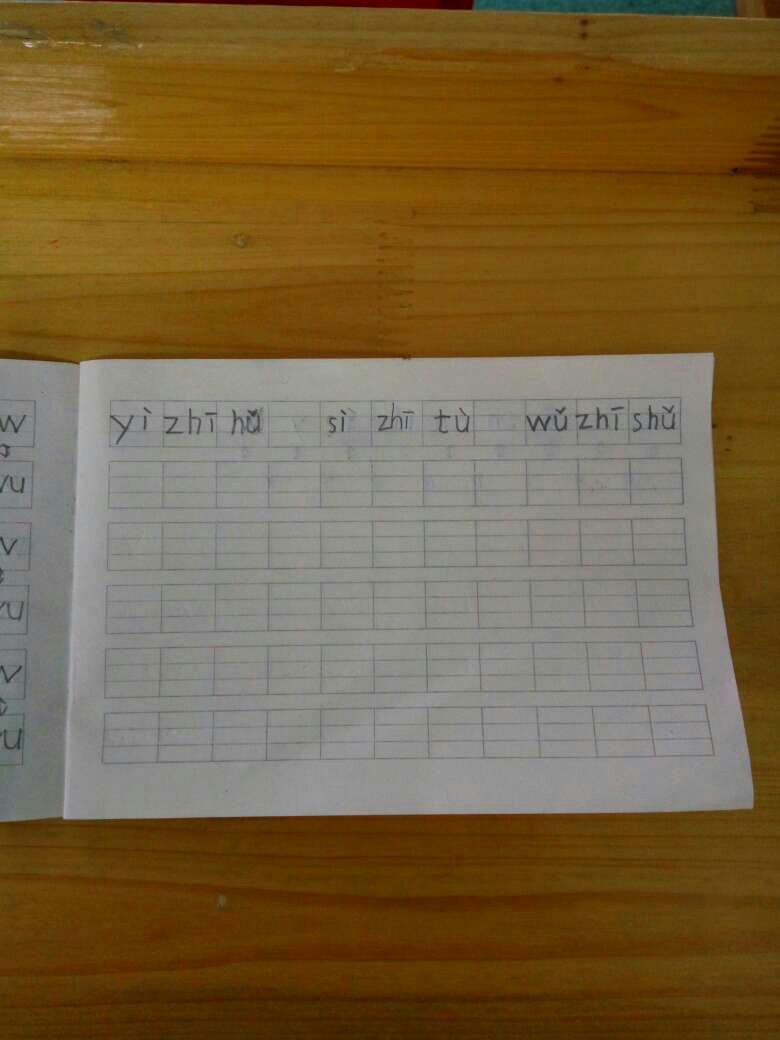 yì zhī hǔ sì zhī tù wǔ zhī shǔ
w
yu
v
yu
w
yu